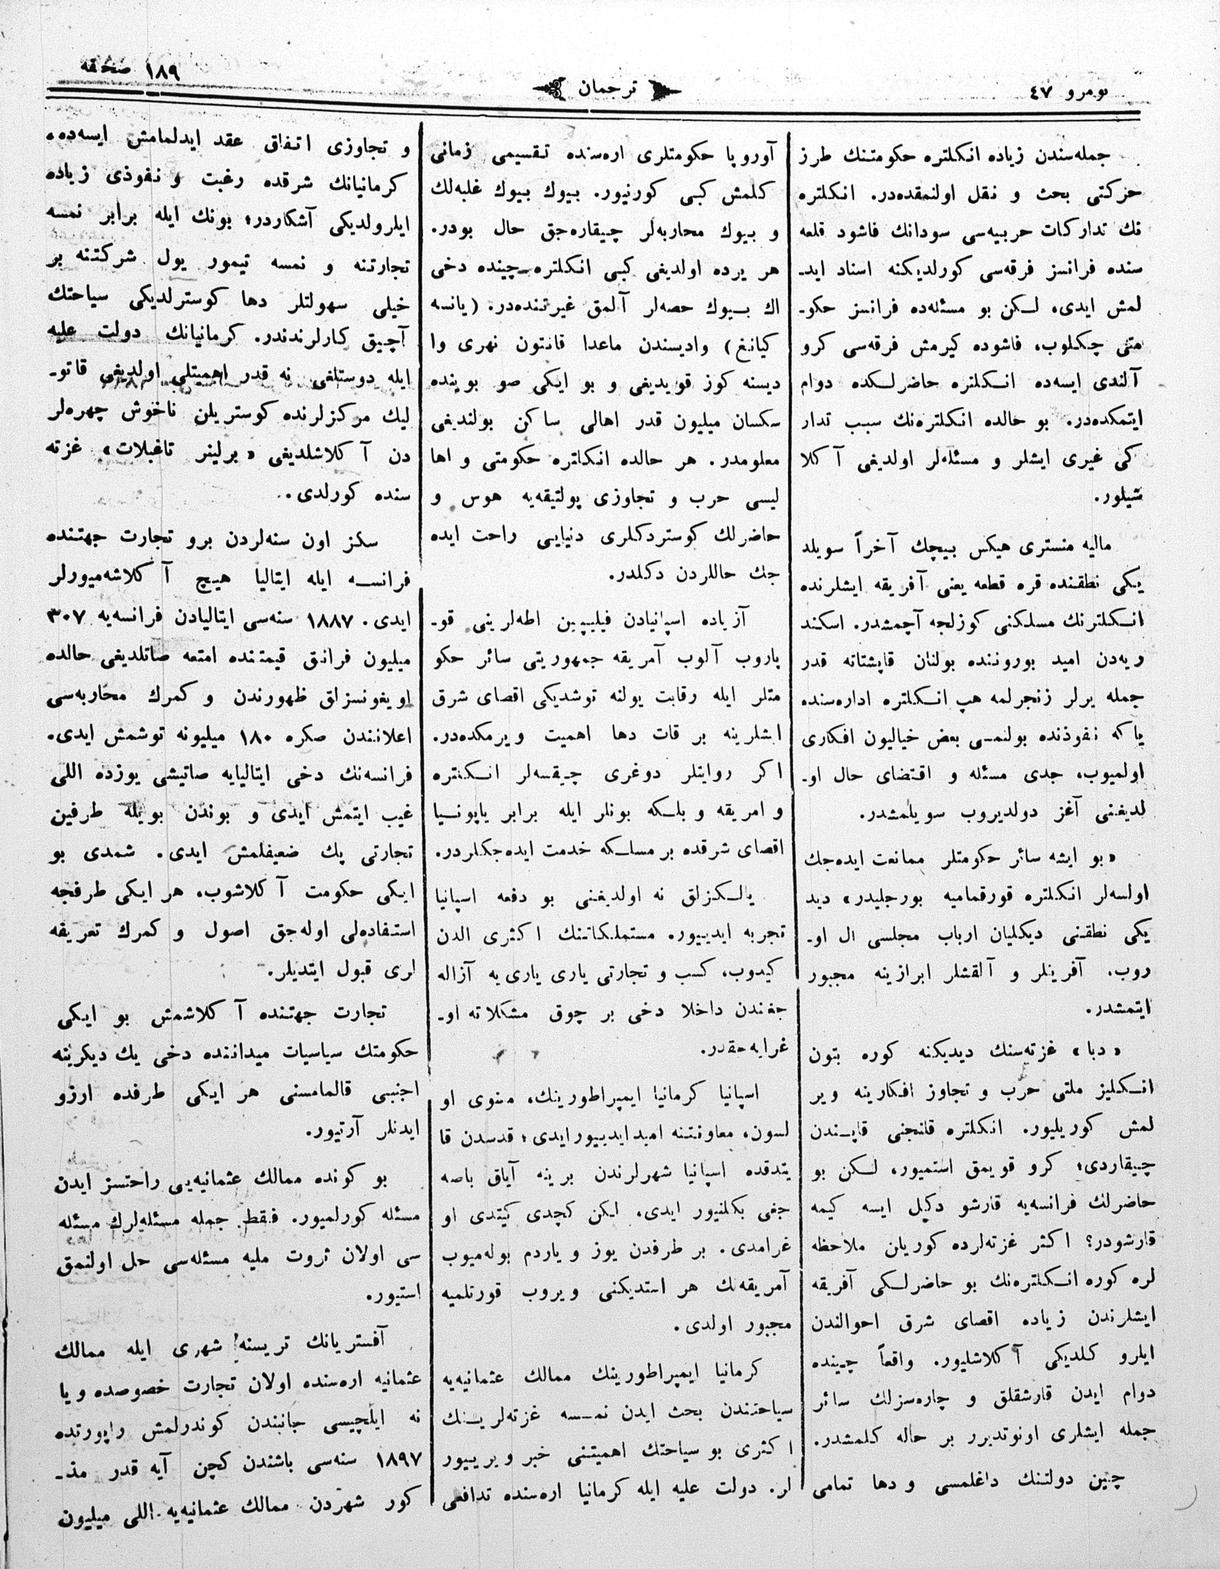 نومرو ٤٧
ترجمان
١٨٩ صحفه
جمله‌سندن زیاده انكلتره حكومتنك طرز
حركتی بحث و نقل اولنمقده‌در. انكلتره
نك تداركات حربیه‌سی سودانك فاشود قلعه
سنده فرانسز فرقه‌سی كورلدیكنه اسناد اید‌ـ
لمش ایدی، لكن بو مسئله‌ده فرانسز حكو‌ـ
متی چكلوب، فاشوده كیرمش فرقه‌سی كرو
آلندی ایسه‌ده انكلتره حاضرلكده دوام
ایتمكده‌در. بو حالده انكلتره‌نك سبب تدار
كی غیری ایشلر و مسئله‌لر اولدیغی آ كلا
شیلور.
مالیه منستری هیكس بیچك آخراً سویلد
یكی نطقنده قره قطعه یعنی آفریقه ایشلرنده
انكلترنك مسلكنی كوزلجه آچمشدر. اسكند
ریه‌دن امید بوروننده بولنان قاپشتاته قدر
جمله یرلر زنجرلمه هپ انكلتره اداره‌سنده
یا كه نفوذنده بولنمسی بعض خیالیون افكاری
اولمیوب، جدی مسئله و اقتضای حال او‌ـ
لدیغنی آغز دولدیروب سویلمشدر.
«بو ایشه سائر حكومتلر ممانعت ایده‌جك
اولسه‌لر انكلتره قورقمامیه بورجلیدر» دید
یكی نطقنی دیكلیان ارباب مجلسی ال او‌ـ
روب. آفرینلر و آلقشلر ابرازینه مجبور
ایتمشدر.
«دبا» غزته‌سنك دیدیكنه كوره بتون
انكلیز ملتی حرب و تجاوز افكارینه ویر
لمش كوریلیور. انكلتره قلنجنی قاپندن
چیقاردی؛ كرو قویمق استمیور، لكن بو
حاضرلك فرانسه‌یه قارشو دكیل ایسه كیمه
قارشودر؟ اكثر غزته‌لرده كوریان ملاحظه
لره كوره انكلتره‌نك بو حاضرلكی آفریقه
ایشلرندن زیاده اقصای شرق احوالندن
ایلرو كلدیكی آ كلاشلیور. واقعاً چینده
دوام ایدن قارشقلق و چاره‌سزلك سائر
جمله ایشلری اونوتدیرر بر حاله كلمشدر.
چین دولتنك داغلمسی و دها تمامی
آوروپا حكومتلری اره‌سنده تقسیمی زمانی
كلمش كبی كورنیور. بیوك بیوك غلبه‌لك
و بیوك محاربه‌لر چیقاره‌جق حال بودر.
هر یرده اولدیغی كبی انكلتره چینده دخی
اك بیوك حصه‌لر آلمق غیرتنده‌در. (یانسه
كیانغ) وادیسندن ماعدا قانتون نهری وا
دیسنه كوز قویدیغی و بو ایكی صو بوینده
سكسان میلیون قدر اهالی ساكن بولندیغی
معلومدر. هر حالده انكلتره حكومتی و اها
لیسی حرب و تجاوزی پولتیقه‌یه هوس و
حاضرلك كوستردكلری دنیایی راحت ایده
جك حاللردن دكلدر.
آزیاده اسپانیادن فیلیپین اطه‌لرینی قو‌ـ
پاروب آلوب آمریقه جمهوریتی سائر حكو
متلر ایله رقابت یولنه توشدیكی اقصای شرق
ایشلرینه بر قات دها اهمیت ویرمكده‌در.
اكر روایتلر دوغری چیقسه‌لر انكلتره
و امریقه و بلكه بونلر ایله برابر یاپونیا
اقصای شرقده بر مسلكه خدمت ایده‌جكلردر.
یالكزلق نه اولدیغنی بو دفعه اسپانیا
تجربه ایدییور. مستملكاتنك اكثری الدن
كیدوب، كسب و تجارتی یاری یاری‌یه آزاله
جغندن داخلا دخی بر چوق مشكلاته او‌ـ
غرایه‌جقدر.
اسپانیا كرمانیا ایمپراطورینك، معنوی او
لسون، معاونتنه امید ایدییورایدی؛ قدسدن قا
یتدقده اسپانیا شهرلرندن برینه آیاق باصه
جغی بكلنیور ایدی. لیكن كچدی كیتدی او
غرامدی. بر طرفدن یوز و یاردم بوله‌میوب
آمریقه‌نك هر استدیكنی ویروب قورتلمیه
مجبور اولدی.
كرمانیا ایمپراطورینك ممالك عثمانیه‌یه
سیاحتندن بحث ایدن نمسه غزته‌لرینك
اكثری بو سیاحتك اهمیتنی خبر ویرییور
لر. دولت علیه ایله كرمانیا اره‌سنده تدافعی
و تجاوزی اتفاق عقد ایدلمامش ایسه‌ده،
كرمانیانك شرقده رغبت و نفوذی زیاده
ایلرولدیكی آشكاردر؛ بونك ایله برابر نمسه
تجارتنه و نمسه تیمور یول شركتنه بر
خیلی سهولتلر دها كوسترلدیكی سیاحتك
آچیق كارلرندندر. كرمانیانك دولت علیه
ایله دوستلغی نه قدر اهمیتلی اولدیغی قاتو‌ـ
لیك مركزلرنده كوستریلن ناخوش چهره‌لر
دن آ كلاشلدیغی «برلینر تاغبلات» غزته
سنده كورلدی.
سكز اون سنه‌لردن برو تجارت جهتنده
فرانسه ایله ایتالیا هیچ آ كلاشه‌میورلر
ایدی. ١٨٨٧ سنه‌سی ایتالیادن فرانسه‌یه ٣٠٧
میلیون فرانق قیمتنده امتعه صاتلدیغی حالده
اویغونسزلق ظهورندن و كمرك محاربه‌سی
اعلانندن صكره ١٨٠ میلیونه توشمش ایدی.
فرانسه‌نك دخی ایتالیایه صاتیشی یوزده اللی
غیب ایتمش ایدی و بوندن بویله طرفین
تجارتی پك ضعیفلمش ایدی. شمدی بو
ایكی حكومت آ كلاشوب، هر ایكی طرفجه
استفاده‌لی اوله‌جق اصول و كمرك تعریفه
لری قبول ایتدیلر.
تجارت جهتنده آ كلاشمش بو ایكی
حكومتك سیاسیات میداننده دخی یك دیكرینه
اجنبی قالمامسنی هر ایكی طرفده ارزو
ایدنلر آرتیور.
بو كونده ممالك عثمانیه‌یی راحتسز ایدن
مسئله كورلمیور. فقط جمله مسئله‌لرك مسئله
سی اولان ثروت ملیه مسئله‌سی حل اولنمق
استیور.
آفستریانك تریسته شهری ایله ممالك
عثمانیه اره‌سنده اولان تجارت خصوصده ویا
نه ایلچیسی جانبندن كوندرلمش راپورتده
١٨٩٧ سنه‌سی باشندن كچن آیه قدر مذ‌ـ
كور شهردن ممالك عثمانیه‌یه اللی میلیون